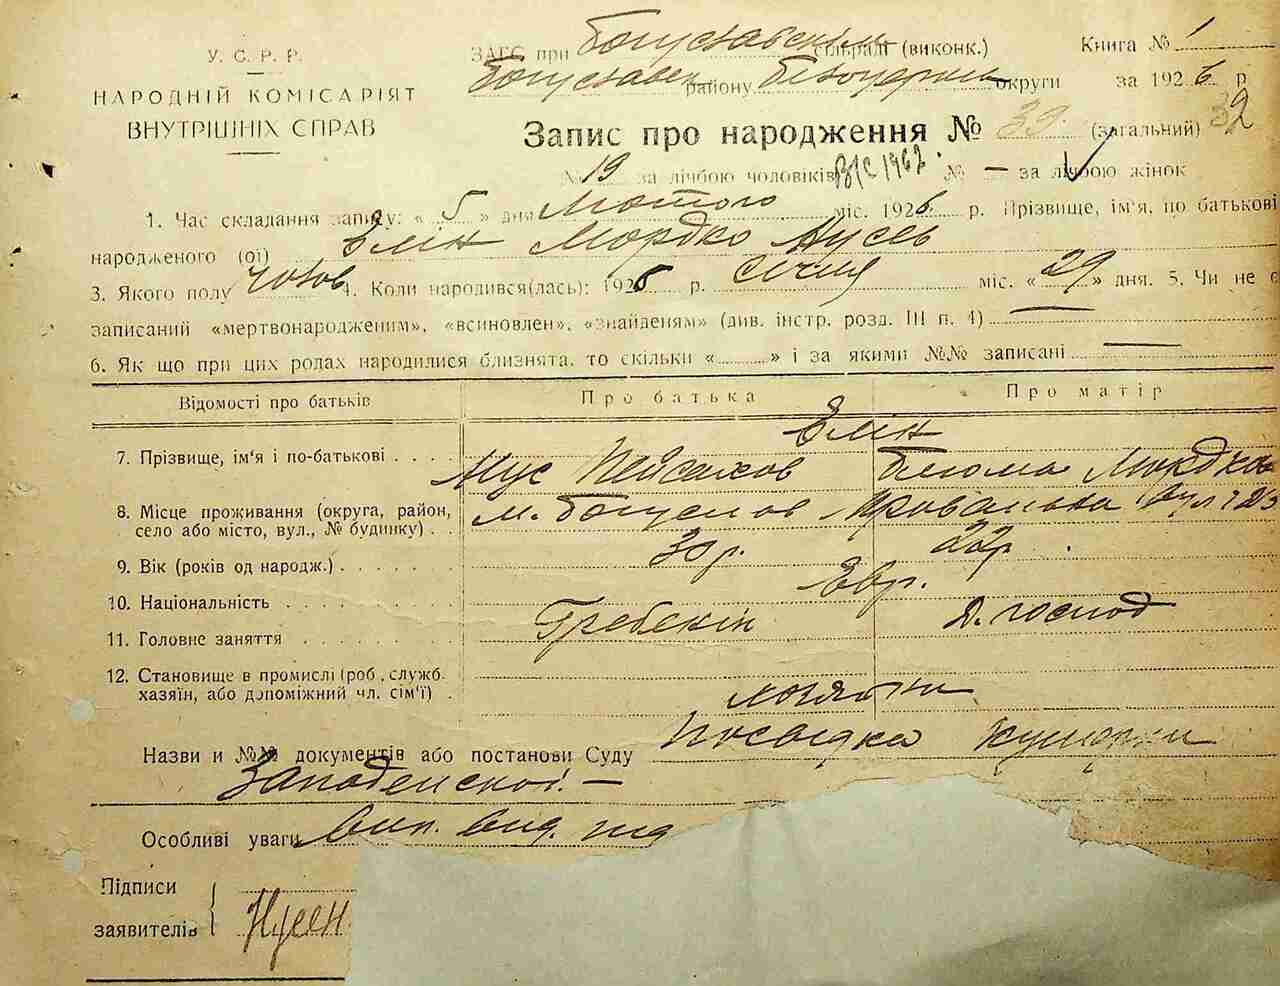 У. С. Р. Р.
НАРОДНІЙ КОМІСАРІЯТ
ВНУТРІШНІХ СПРАВ
ЗАГС при Богуславським сільраді (виконк.) Книга № 1
Богуславськ району Білоцерків округи за 1926 р
Запис про народження № 39. (загальний) 32
№ 19 за лічбою чоловіків № — за лічбою жінок
1. Час складання запису: « 5 » дня Лютого міс. 1926 р. Прізвище, ім'я, по батькові
народженого (ої) Элік Мордко Нусев
3. Якого полу чолов 4. Коли народився(лась): 1926 р. січня міс. « 29 » дня. 5. Чи не є
записаний «мертвонародженим», «всиновлен», «знайденям» (див. інстр. розд. III п. 4) —
6. Як що при цих родах народилися близнята, то скільки « » і за якими №№ записані —
Відомості про батьків Про батька Про матір
Элік
7. Прізвище, ім'я і по-батькові . . . Нус Пейсахов Блюма Мордков
8. Місце проживання (округа, район,
село або місто, вул., № будинку) . . м. Богуслав вул
9. Вік (років од народж.) . . . . . . 30 р. 22 р.
10. Національність . . . . . . . . Евр.
11. Головне заняття . . . . . . . Гребекін Д. господ
12. Становище в промислі (роб., служб.
хазяїн, або допоміжний чл. сім'ї) .
Назви и №№ документів або постанови Суду Посвідка
Особливі уваги Вип. вид.
Підписи
заявителів Нусен